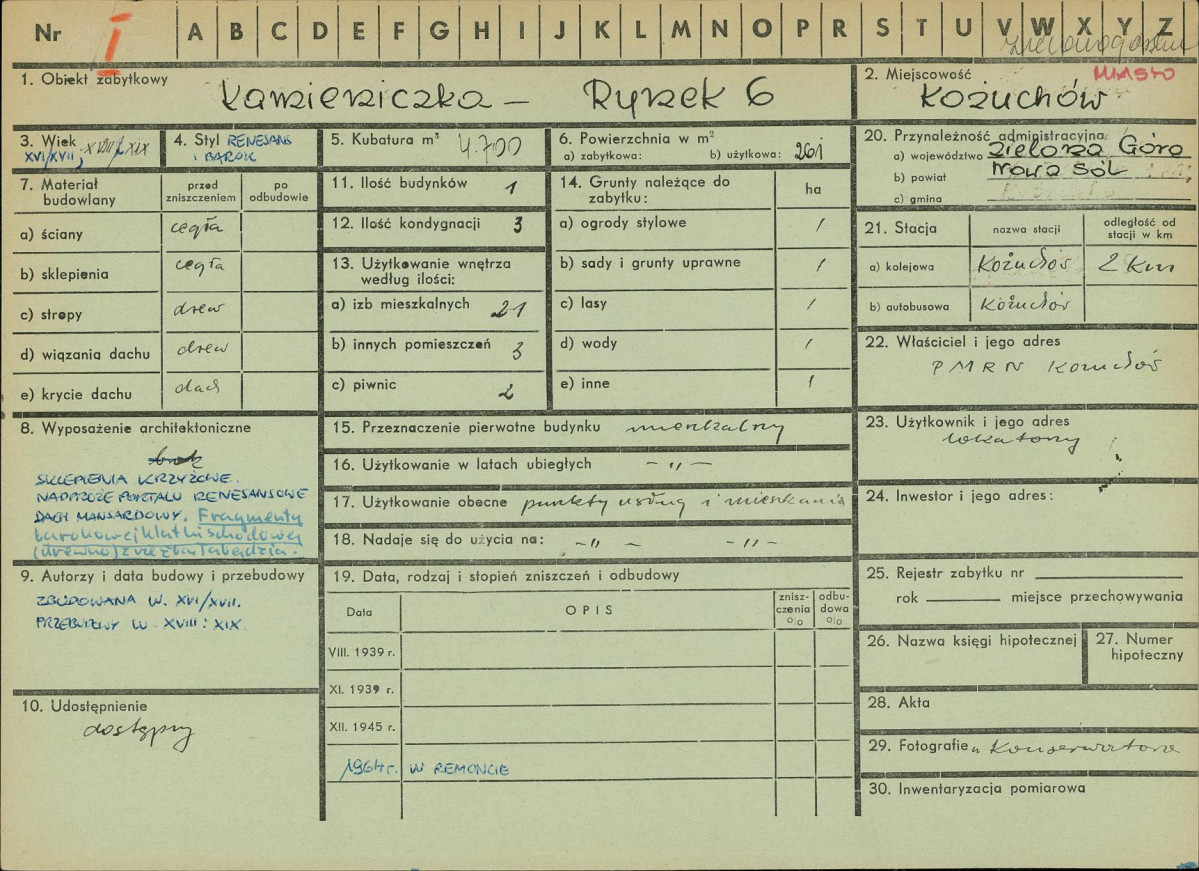 Nr I A B C D E F G H I J K L M N O P R S T U V W X Y Z
1. Obiekt zabytkowy
Kamieniczka – Rynek 6
2. Miejscowość MIASTO
Kożuchów
3. Wiek XVIII/XIX
XVI/XVII;
4. Styl RENESANS
i BAROK
5. Kubatura m³ 4.700
6. Powierzchnia w m²
a) zabytkowa: b) użytkowa: 261
20. Przynależność administracyjna
a) województwo Zielona Góra
b) powiat Nowa Sól
c) gmina
7. Materiał budowlany
przed zniszczeniem
po odbudowie
a) ściany cegła
b) sklepienia cegła
c) stropy drew
d) wiązania dachu drew
e) krycie dachu dach
11. Ilość budynków 1
12. Ilość kondygnacji 3
13. Użytkowanie wnętrza
według ilości:
a) izb mieszkalnych 21
b) innych pomieszczeń 3
c) piwnic 2
14. Grunty należące do
zabytku:
ha
a) ogrody stylowe /
b) sady i grunty uprawne /
c) lasy /
d) wody /
e) inne /
21. Stacja
nazwa stacji
odległość od
stacji w km
a) kolejowa Kożuchów 2 Km
b) autobusowa Kożuchów
22. Właściciel i jego adres
PMRN Kożuchów
8. Wyposażenie architektoniczne
brak
SKLEPIENIA KRZYŻOWE.
NADPROŻE PORTALU RENESANSOWE
DACH MANSARDOWY. Fragmenty
barokowej klatki schodowej
(drewno) z rzeźbą łabędzia.
15. Przeznaczenie pierwotne budynku mieszkalny
16. Użytkowanie w latach ubiegłych – „ –
17. Użytkowanie obecne punkty usług i mieszkania
18. Nadaje się do użycia na: – „ – – „ –
23. Użytkownik i jego adres
lokatorzy
24. Inwestor i jego adres:
9. Autorzy i data budowy i przebudowy
ZBUDOWANA W. XVI/XVII.
PRZEBUDOWY W. XVIII i XIX.
10. Udostępnienie
dostępny
19. Data, rodzaj i stopień zniszczeń i odbudowy
Data
OPIS
znisz-
czenia
o/o
odbu-
dowa
o/o
VIII. 1939 r.
XI. 1939 r.
XII. 1945 r.
1964 r. W REMONCIE
25. Rejestr zabytku nr
rok miejsce przechowywania
26. Nazwa księgi hipotecznej
27. Numer
hipoteczny
28. Akta
29. Fotografie u Konserwatora
30. Inwentaryzacja pomiarowa